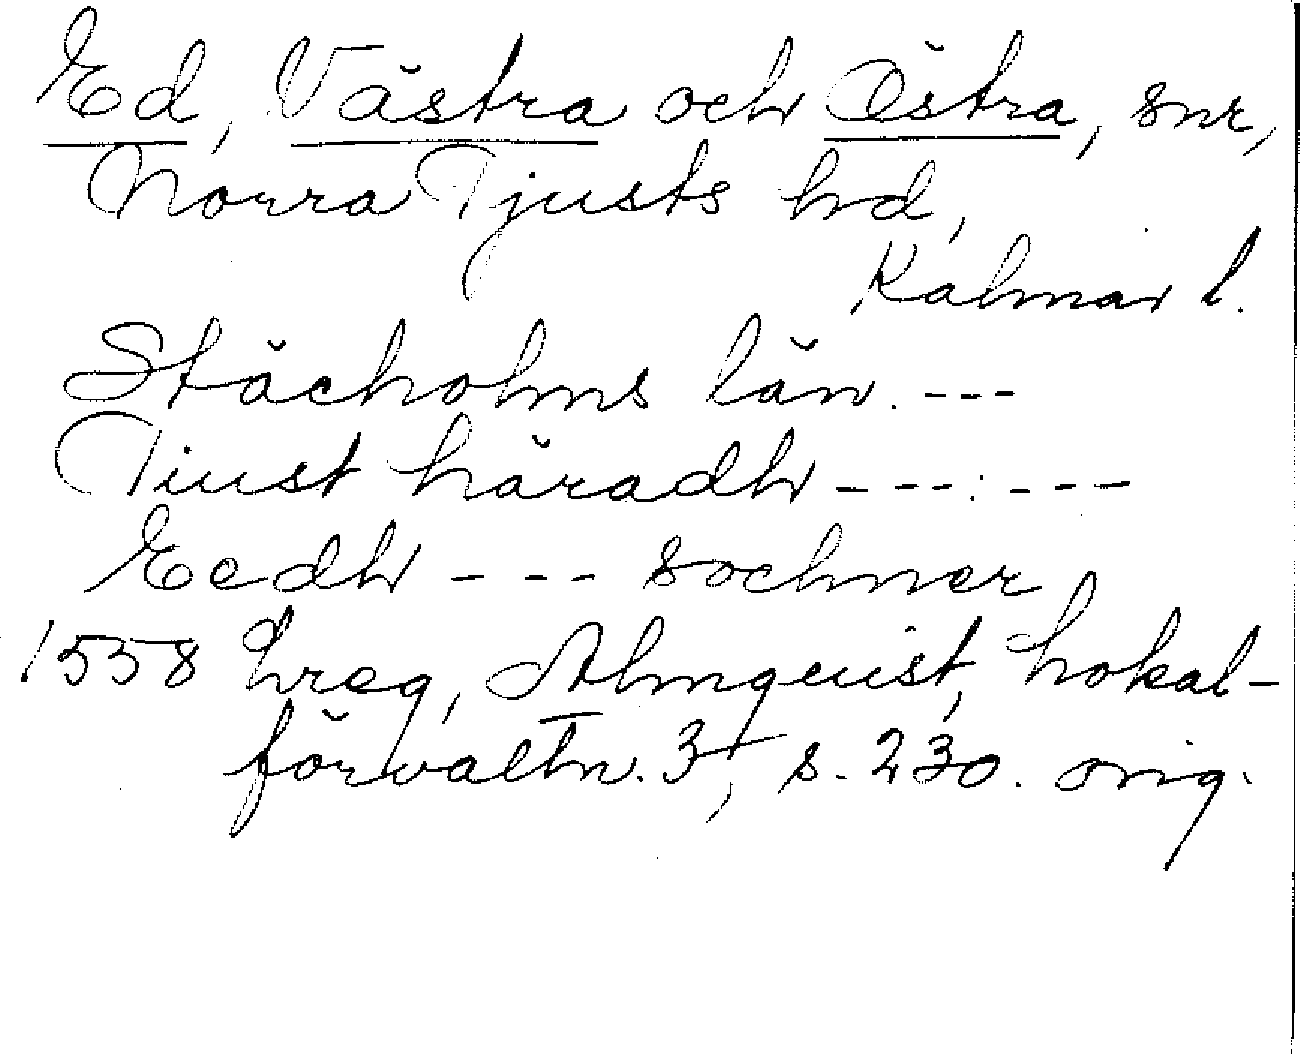 Ed, Västra och Östra, snr,
Norra Tjusts hd,
Kalmar l.
Stächolms län. ---
Tiust häradh ---:---
Eedh --- sochner
1558 Lreg, Almquist, Lokal-
förvaltn. 3, s. 230. orig.